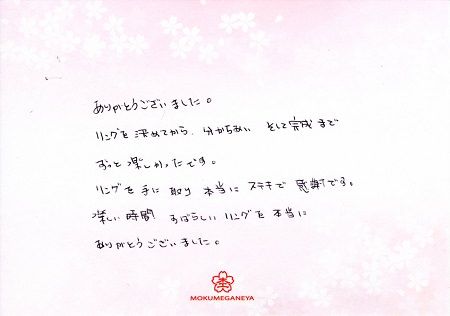 ありがとうございました。
リングを決めてから、分かちあい、そして完成まで
ずっと楽しかったです。
リングを手に取り 本当にステキで 感謝です。
楽しい時間 すばらしいリングを本当に
ありがとうございました。
MOKUMEGANEYA